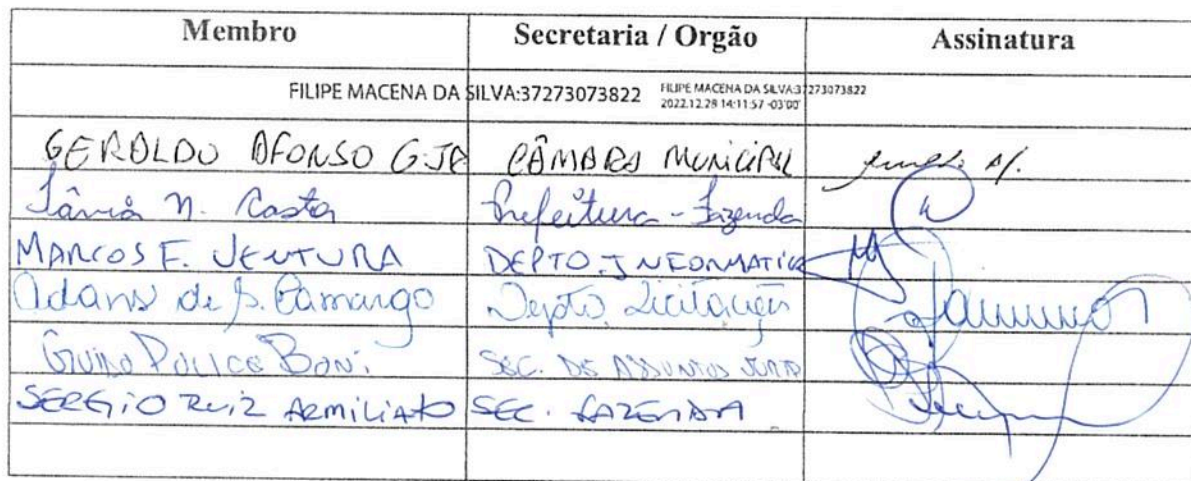 Membro Secretaria / Orgão Assinatura
FILIPE MACENA DA SILVA:37273073822 FILIPE MACENA DA SILVA:37273073822
2022.12.28 14:11:57 -03'00'
GERALDO AFONSO G. JR CÂMARA MUNICIPAL
Tânia N. Costa Prefeitura - Fazenda
MARCOS F. VENTURA DEPTO. INFORMATICA
Adans de S. Camargo Depto. Licitações
GUIDO BONI SEC. DE ASSUNTOS JURID
SERGIO RUIZ ARMILIATO SEC. FAZENDA